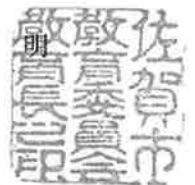 佐賀市
教育委員会
教育長之印
明